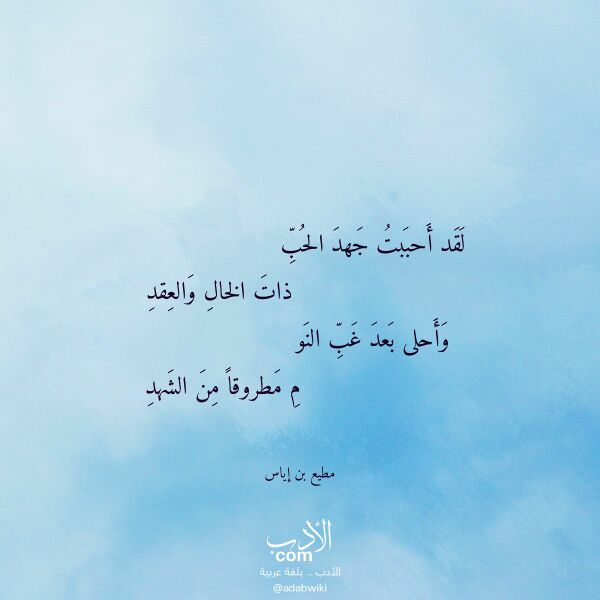 لَقَد أَحبَبتُ جَهدَ الحُبِّ
ذاتَ الخالِ وَالعِقدِ
وَأَحلى بَعدَ غَبِّ النَو
مِ مَطروقاً مِنَ الشَهدِ
مطيع بن إياس
الأدب
com
الأدب .. بلغة عربية
@adabwiki